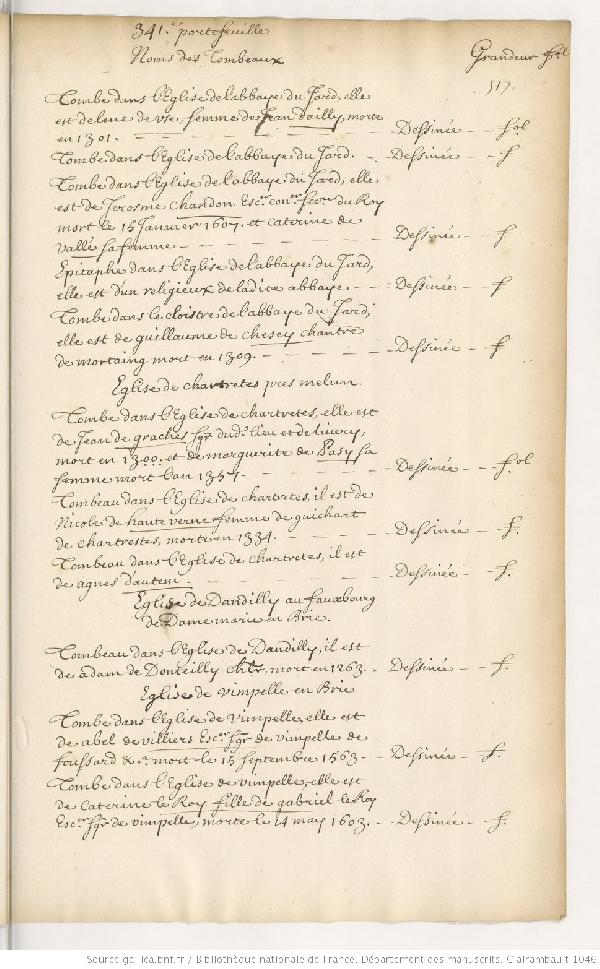 341.e portefeuille
Noms des Tombeaux Grandeur fol
517.
Tombe dans l'Eglise de l'abbaye du Jard, elle
est delene de vre, femme de Jean dailly, morte
en 1301. Dessinée fol
Tombe dans l'Eglise de l'abbaye du Jard. Dessinée f
Tombe dans l'Eglise de l'abbaye du Jard, elle
est de Jerosme chandon Escer coner secre du Roy
mort le 15 Janvier 1607. et caterine de
vallé sa femme Dessinée f
Epitaphe dans l'Eglise de l'abbaye du Jard,
elle est d'un religieux de ladite abbaye Dessinée f
Tombe dans le cloistre de l'abbaye du Jard,
elle est de guillaume de chesey chantre
de mortaing mort en 1309. Dessinée f
Eglise de chartretes pres melun.
Tombe dans l'Eglise de chartretes, elle est
de Jean de graches sgr dud. lieu et de livery,
mort en 1300. et de marguerite de Pasy sa
femme mort l'an 1357. Dessinée fol
Tombeau dans l'Eglise de chartretes, il est de
Nicole de haute verne femme de guichart
de chartrestes, morte en 1334. Dessinée f.
Tombeau dans l'Eglise de chartretes, il est
de agnes d'autem. Dessinée f.
Eglise de Dandilly au fauxbourg
de Dame marie en Brie.
Tombeau dans l'Eglise de Dandilly, il est
de adam de Donteilly chlr, mort en 1263. Dessinée f.
Eglise de vimpelle en Brie
Tombe dans l'Eglise de vimpelle, elle est
de abel de villiers Escer sgr de vimpelle de
foussard &c. mort le 15 septembre 1563. Dessinée f.
Tombe dans l'Eglise de vimpelle, elle est
de caterine le Roy fille de gabriel le Roy
Escer sgr de vimpelle, morte le 14 may 1603. Dessinée f.
Source gallica.bnf.fr / Bibliothèque nationale de France. Département des manuscrits. Clairambault 1046